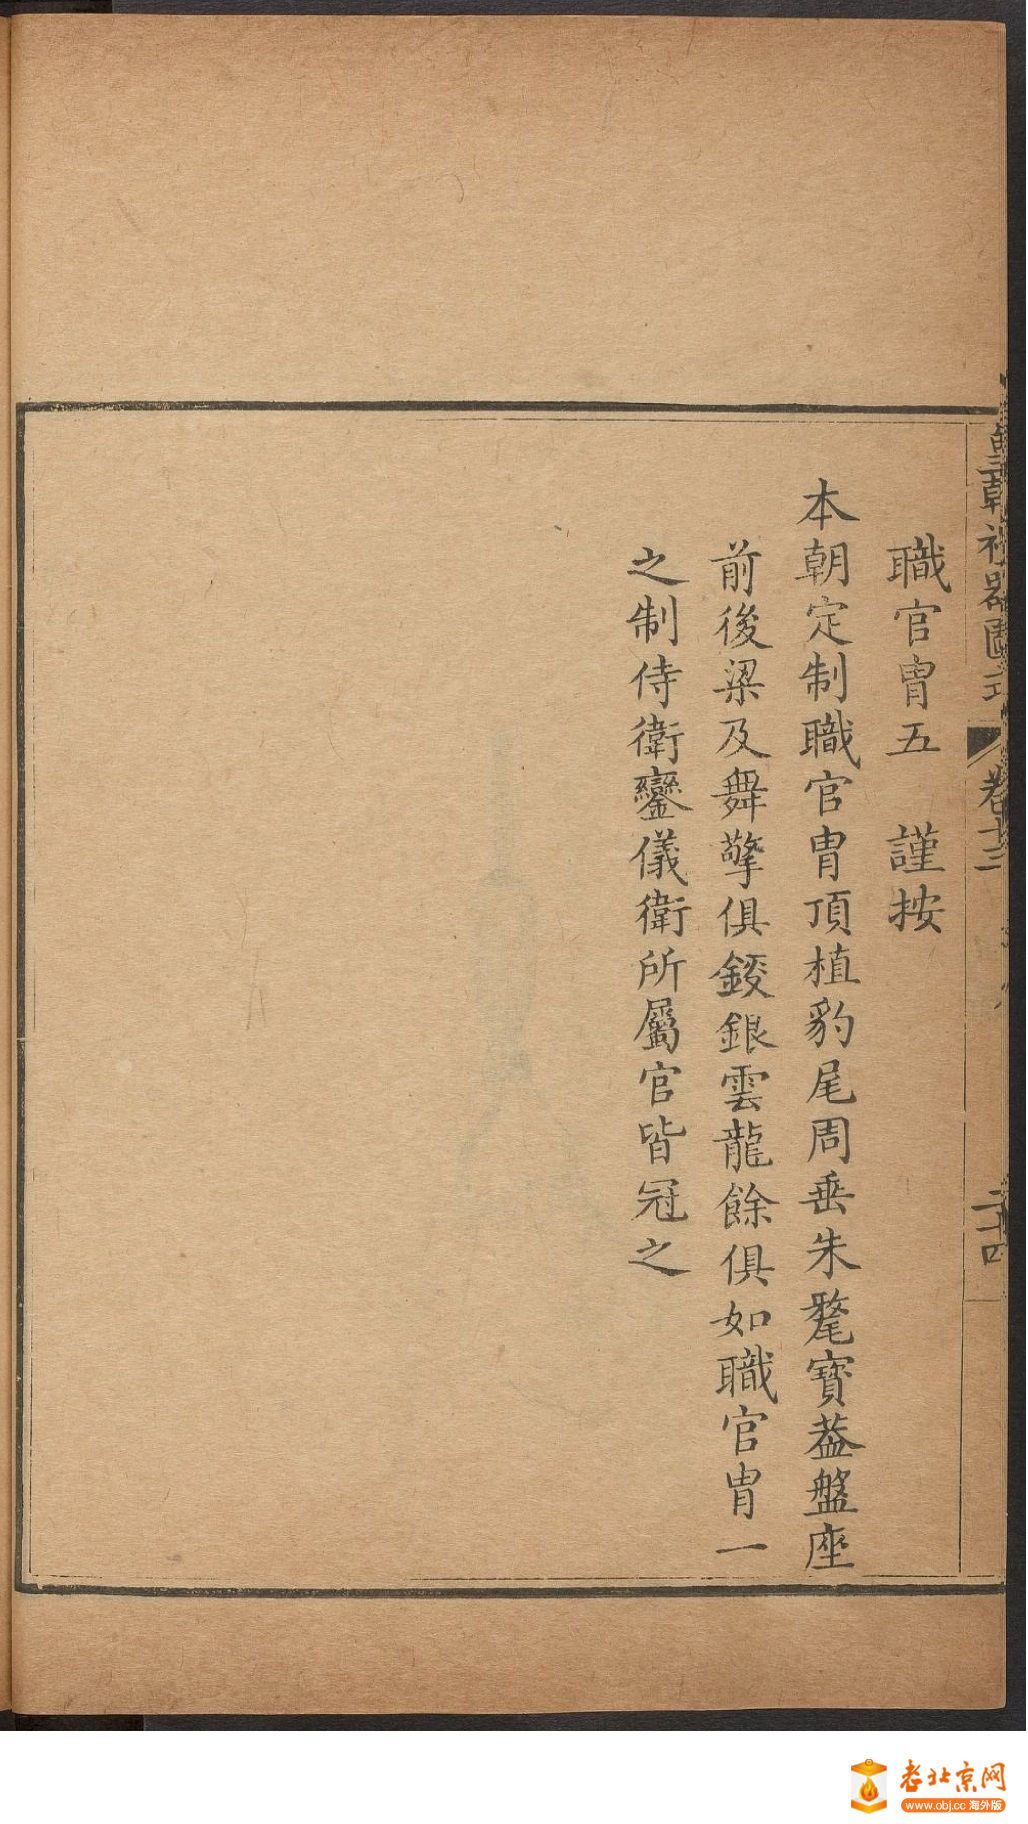 皇朝禮器圖式 卷十三 二十四
職官冑五 謹按
本朝定制職官冑頂植豹尾周垂朱氂寶葢盤座
前後梁及舞擎俱鋄銀雲龍餘俱如職官冑一
之制侍衛鑾儀衛所屬官皆冠之
老北京网
www.obj.cc 海外版